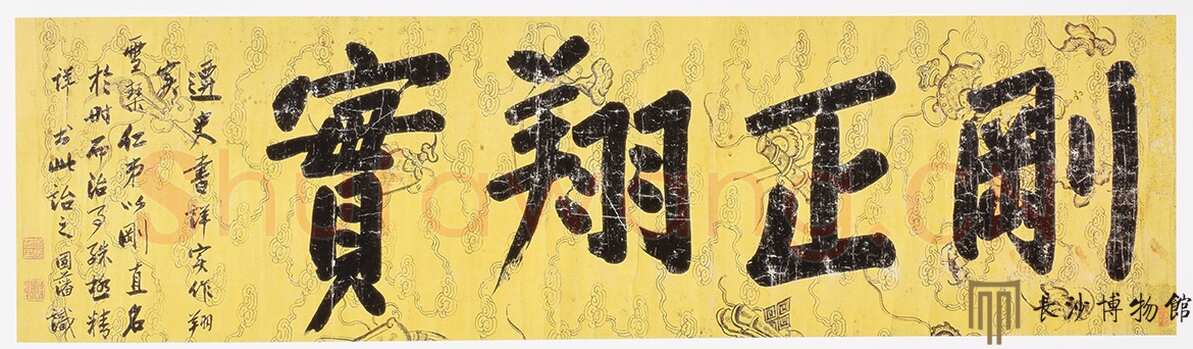 剛正翔實
遷史書詳实作翔
实
雪琴仁弟以剛直名
於时而治事殊極精
詳書此詒之 國藩識
Shufawang.cn
長沙博物館